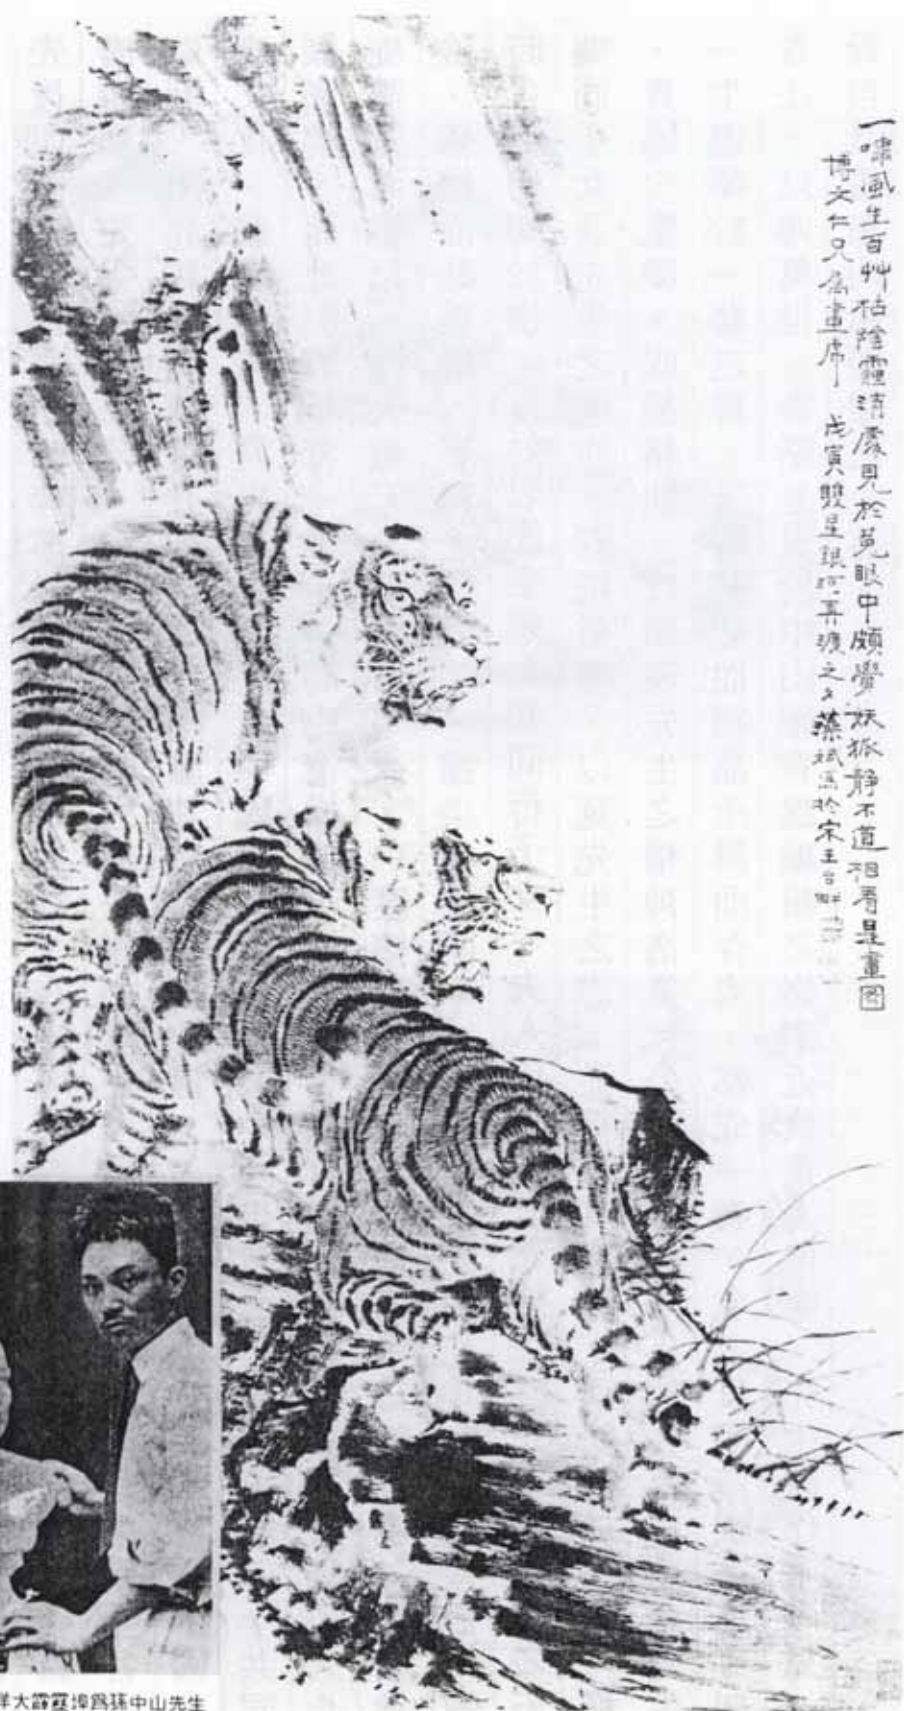 一嘯風生百艸枯陰霾消處見於菟眼中頗覺妖狐靜不道相看是畫圖
博文仁兄屬畫虎 戊寅雙星銀河再渡之夕藻斌寫於宋王台畔
洋大霹靂埠爲孫中山先生